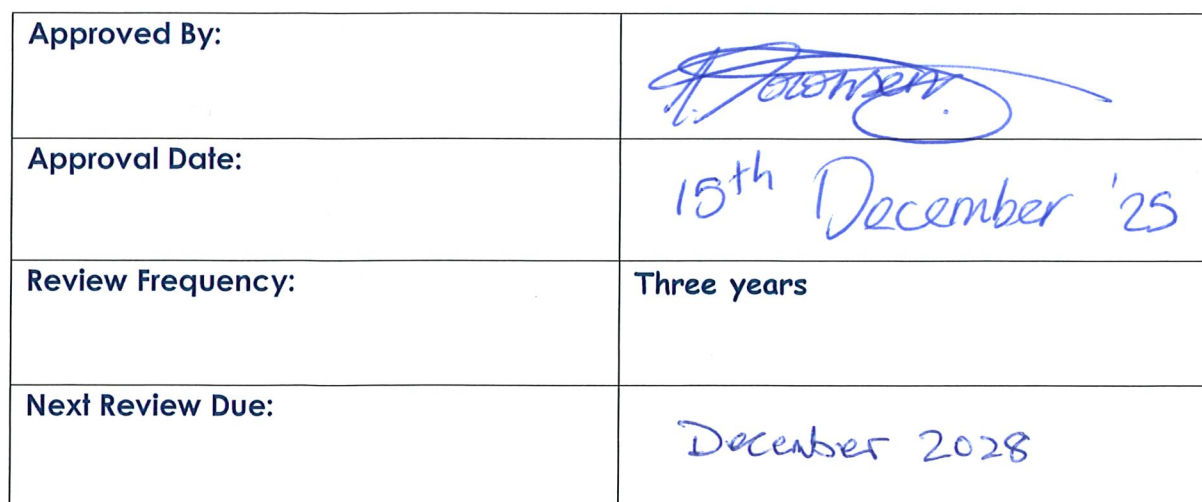 Approved By:
Approval Date:
15th December '25
Review Frequency:
Three years
Next Review Due:
December 2028